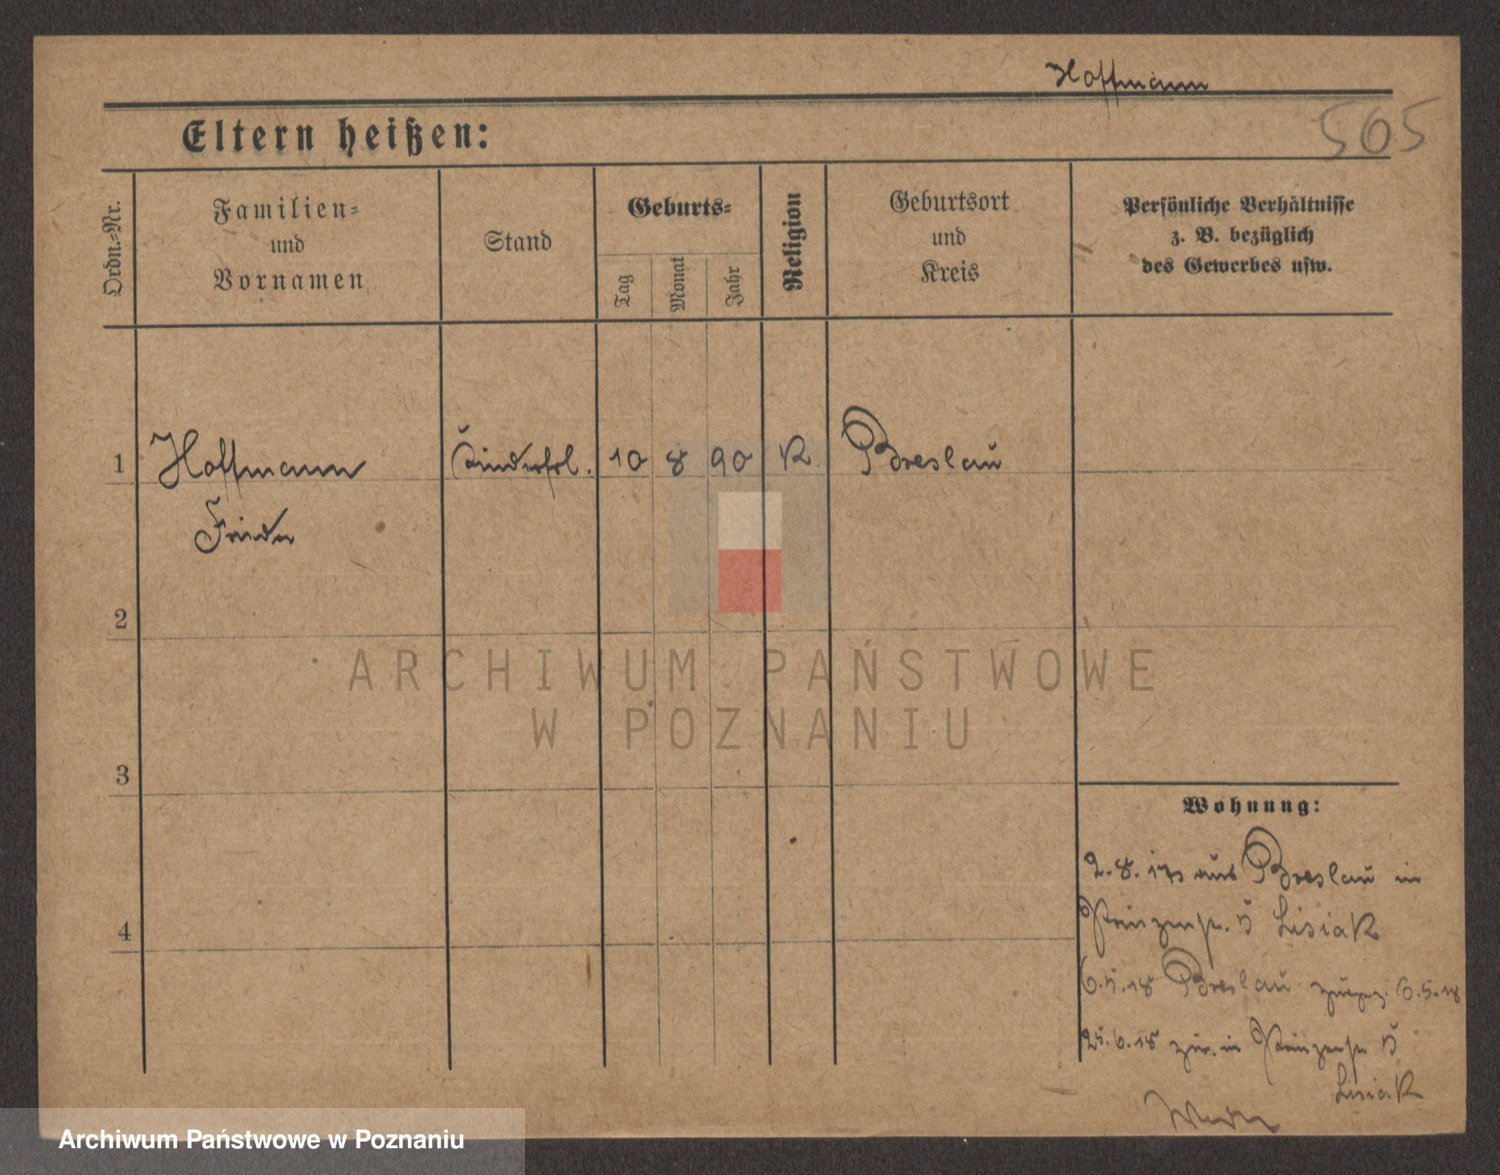 Hoffmann
565
Eltern heißen:
Ordn.-Nr.
Familien-
und
Vornamen
Stand
Geburts-
Tag
Monat
Jahr
Religion
Geburtsort
und
Kreis
Persönliche Verhältnisse
z. B. bezüglich
des Gewerbes usw.
1 Hoffmann Kinderfrl. 10 8 90 K Breslau
Frieda
2
3
4
Wohnung:
2.8.17 aus Breslau in
Prinzenstr. 5 Lisiak
6.5.18 Breslau 6.5.18
25.6.18 zur. in Prinzenstr. 5
Lisiak
ARCHIWUM PAŃSTWOWE
W POZNANIU
Archiwum Państwowe w Poznaniu